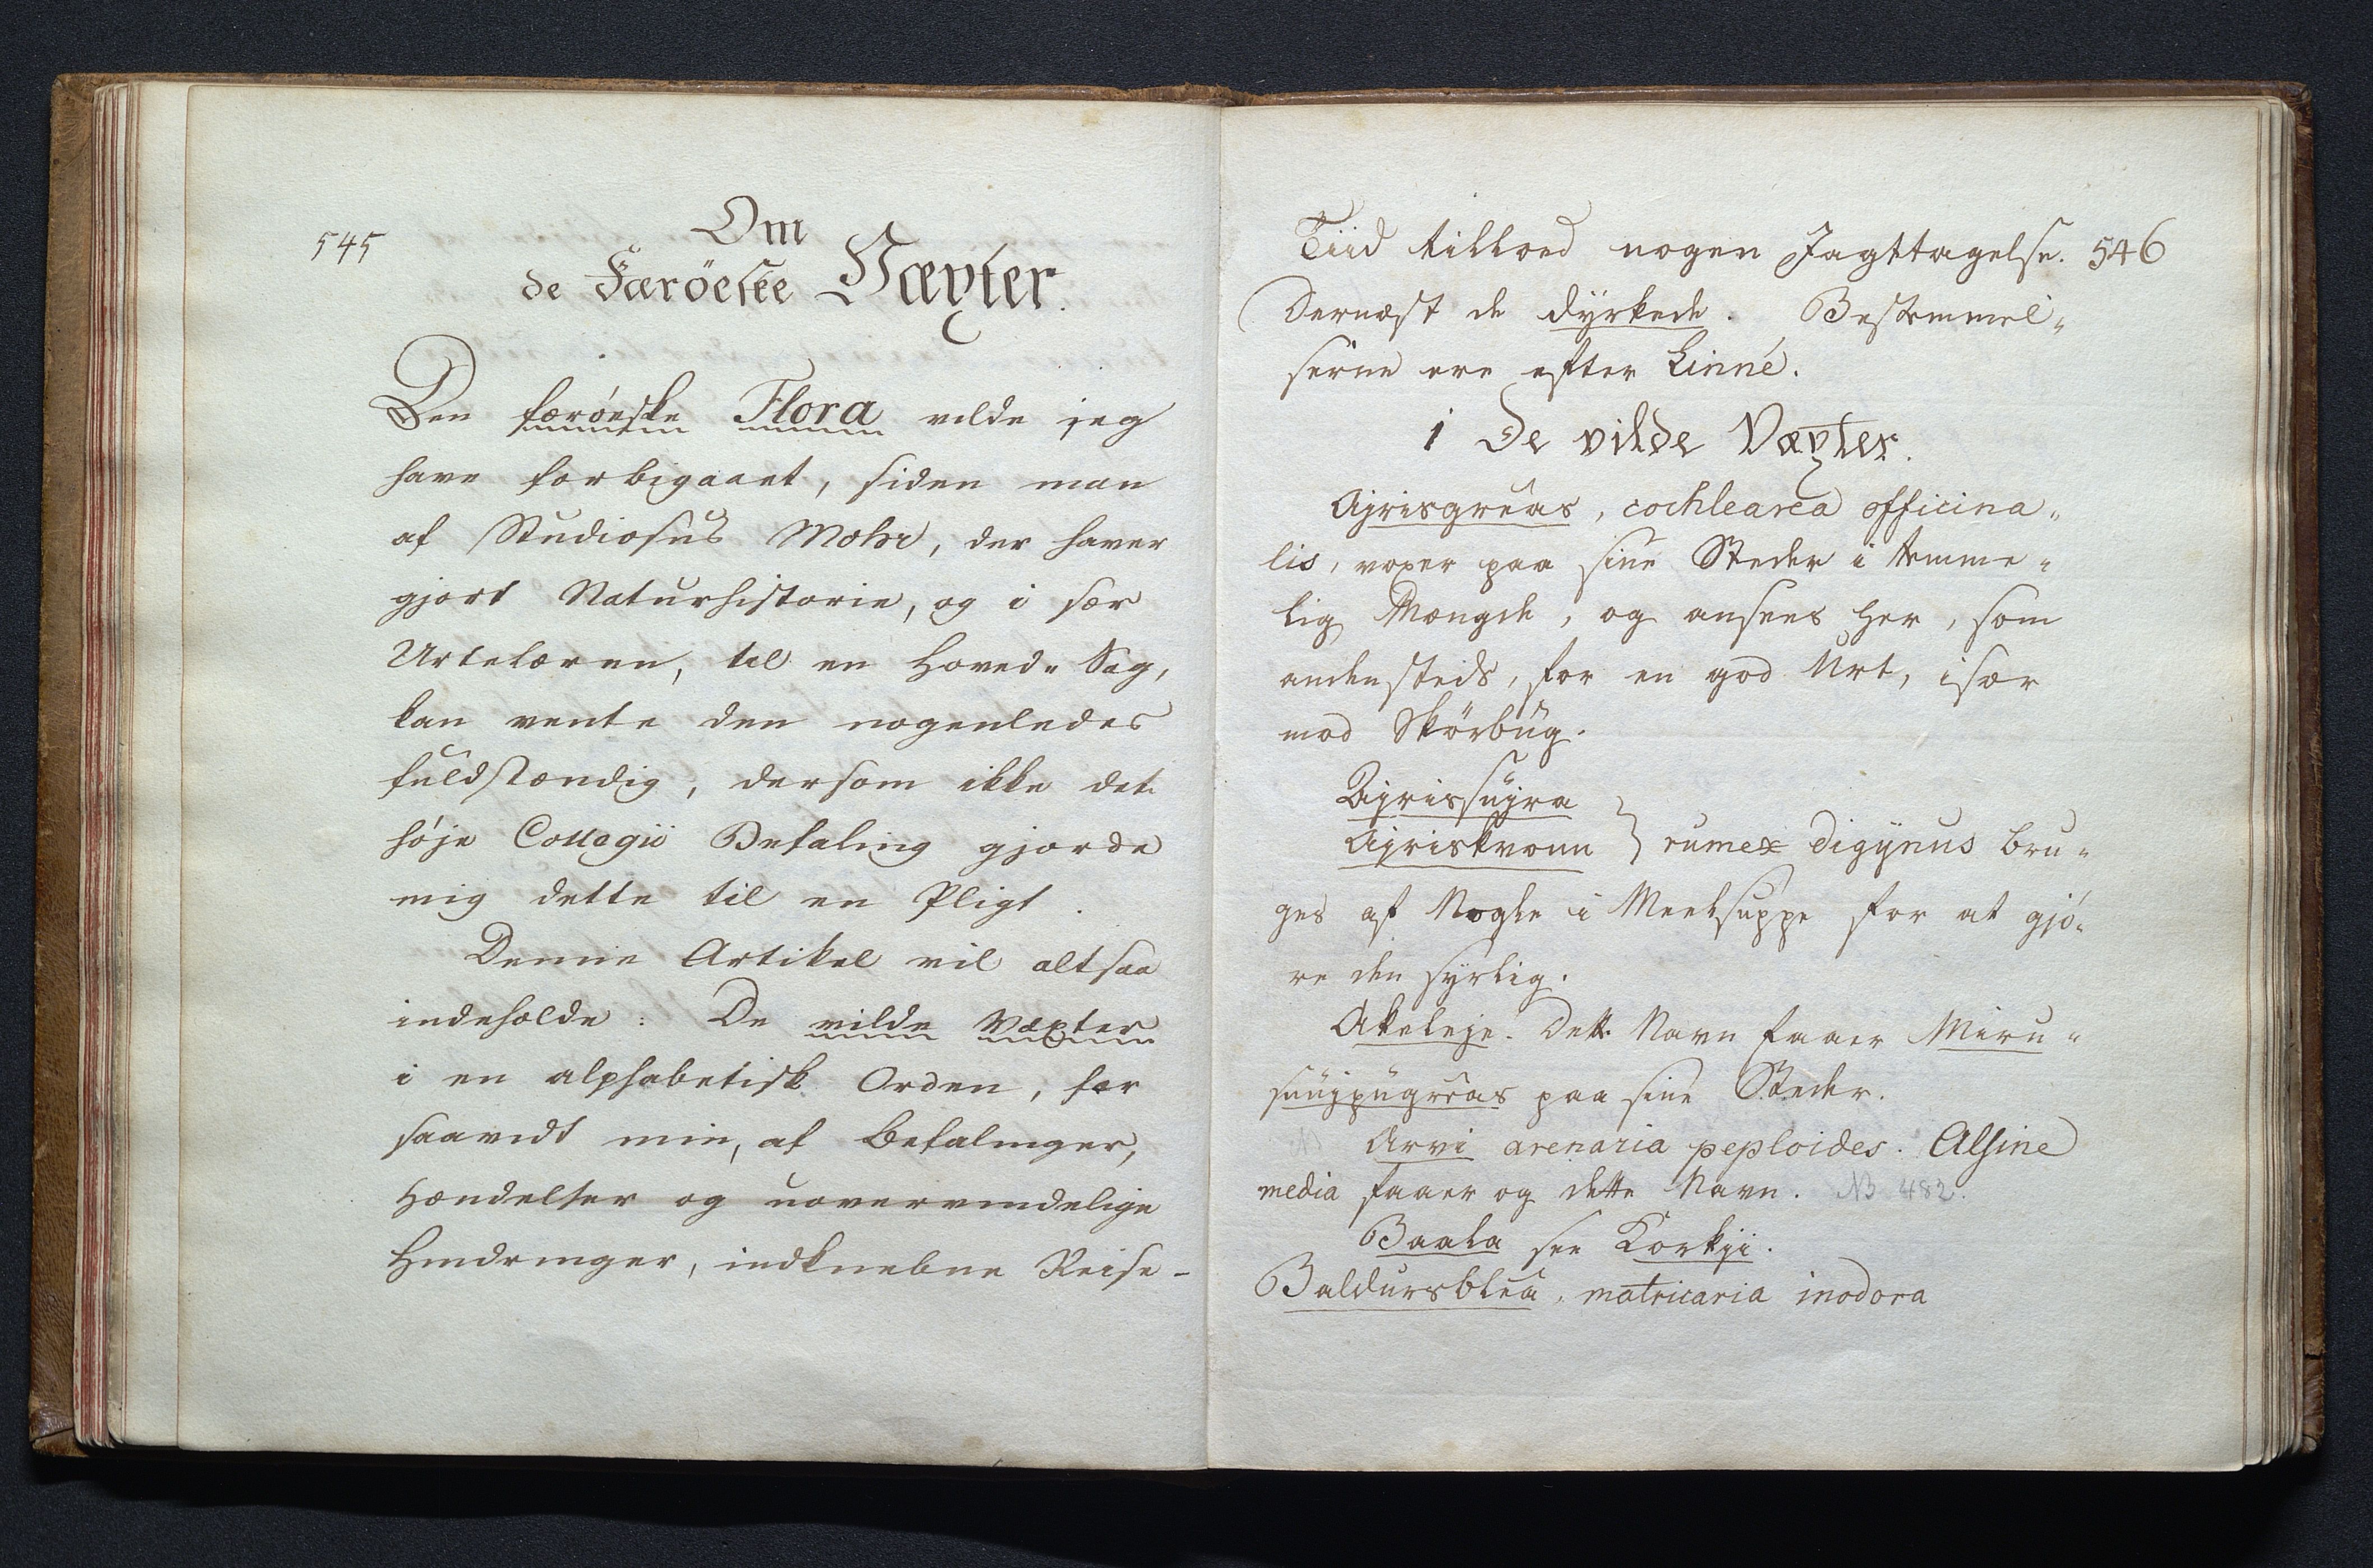 545
Om
de Færöeske Væxter.
Den færöeske Flora vilde jeg
have forbigaaet, siden man
af Studiosus Mohr, der haver
gjort Naturhistorie, og i sær
Urtelæren, til en Hoved= Sag,
kan vente den nogenledes
fuldstændig, dersom ikke det
höje Collegii Befaling gjorde
mig dette til en Pligt.
Denne Artikel vil altsaa
indeholde: De vilde Væxter
i en alphabetisk Orden, for
saavidt min, af Befalinger,
Hændelser og uovervindelige
Hindringer, indknebne Reise-
Tiid tillod nogen Jagttagelse. 546
Dernæst de dyrkede. Bestemmel=
serne ere efter Linné.
1 De vilde Væxter.
Ajrisgreas, cochlearea officina=
lis, voxer paa sine Steder i temme=
lig Mængde, og ansees her, som
andensteds, for en god Urt, især
mod Skörbug.
Ajrissujra
Ajriskvonn } rumex digynus bru=
ges af Nogle i Meelsuppe for at gjö=
re den syrlig.
Akeleje. Dette Navn faaer Miru=
suujpugreas paa sine Steder.
Arvi arenaria peploides. Alsine
media faaer og dette Navn. NB 482.
Baala see Korkji.
Baldursblea, matricaria inodora